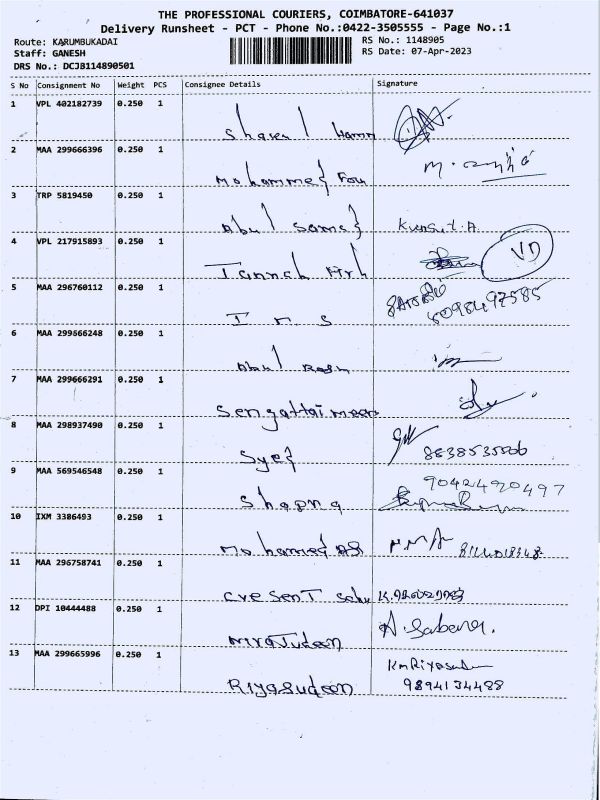 THE PROFESSIONAL COURIERS, COIMBATORE-641037
Delivery Runsheet - PCT - Phone No.:0422-3505555 - Page No.:1
Route: KARUMBUKADAI
Staff: GANESH
DRS No.: DCJB114890501
RS No.: 1148905
RS Date: 07-Apr-2023
S No Consignment No Weight PCS Consignee Details Signature
1 VPL 402182739 0.250 1
2 MAA 299666396 0.250 1
Mohammed
3 TRP 5819450 0.250 1
Abul Samad
4 VPL 217915893 0.250 1
Jannah VD
5 MAA 296760112 0.250 1
I M S
6 MAA 299666248 0.250 1
Abul
7 MAA 299666291 0.250 1
Sengattai
8 MAA 298937490 0.250 1
Syed
9 MAA 569546548 0.250 1
9042490497
Shapna
10 IXM 3386493 0.250 1
Mohamed
11 MAA 296758741 0.250 1
12 DPI 10444488 0.250 1
A. Sabena.
13 MAA 299665996 0.250 1
Riyasudeen 9894134488